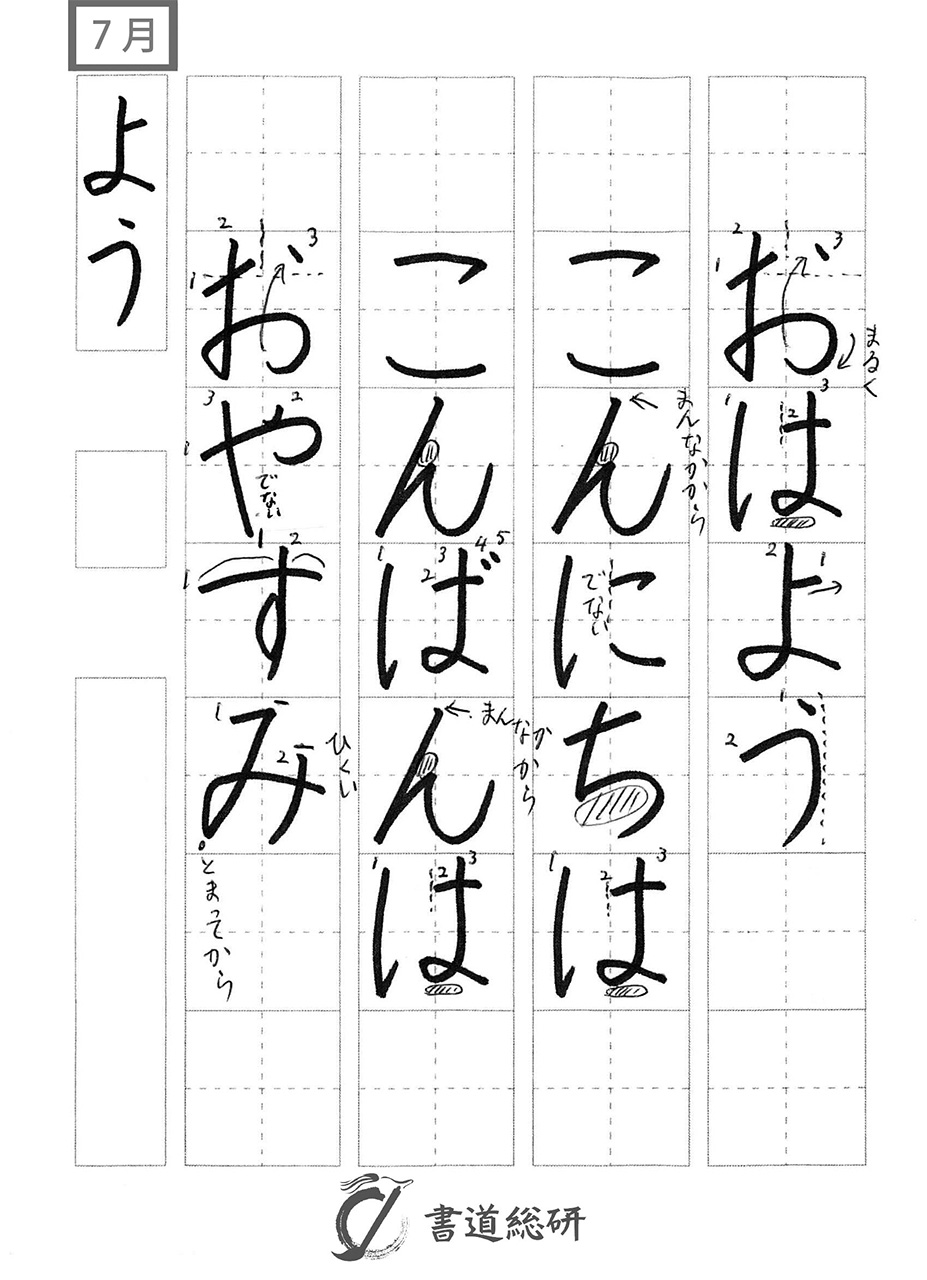 7月
おはよう
こんにちは
こんばんは
おやすみ
よう
まるく
まんなかから
でない
まんなかから
でない
ひくい
とまってから
書道総研